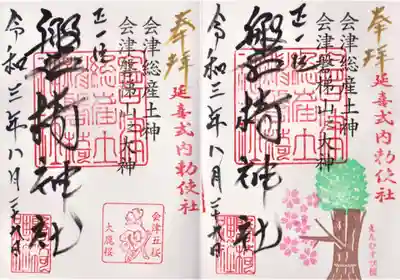 奉拝
会津総産土神
会津磐梯山大神
正一位
磐椅神社
令和三年八月二十九日
会津五桜
大鹿桜
奉拝
延喜式内勅使社
会津総産土神
会津磐梯山大神
正一位
磐椅神社
令和三年八月二十九日